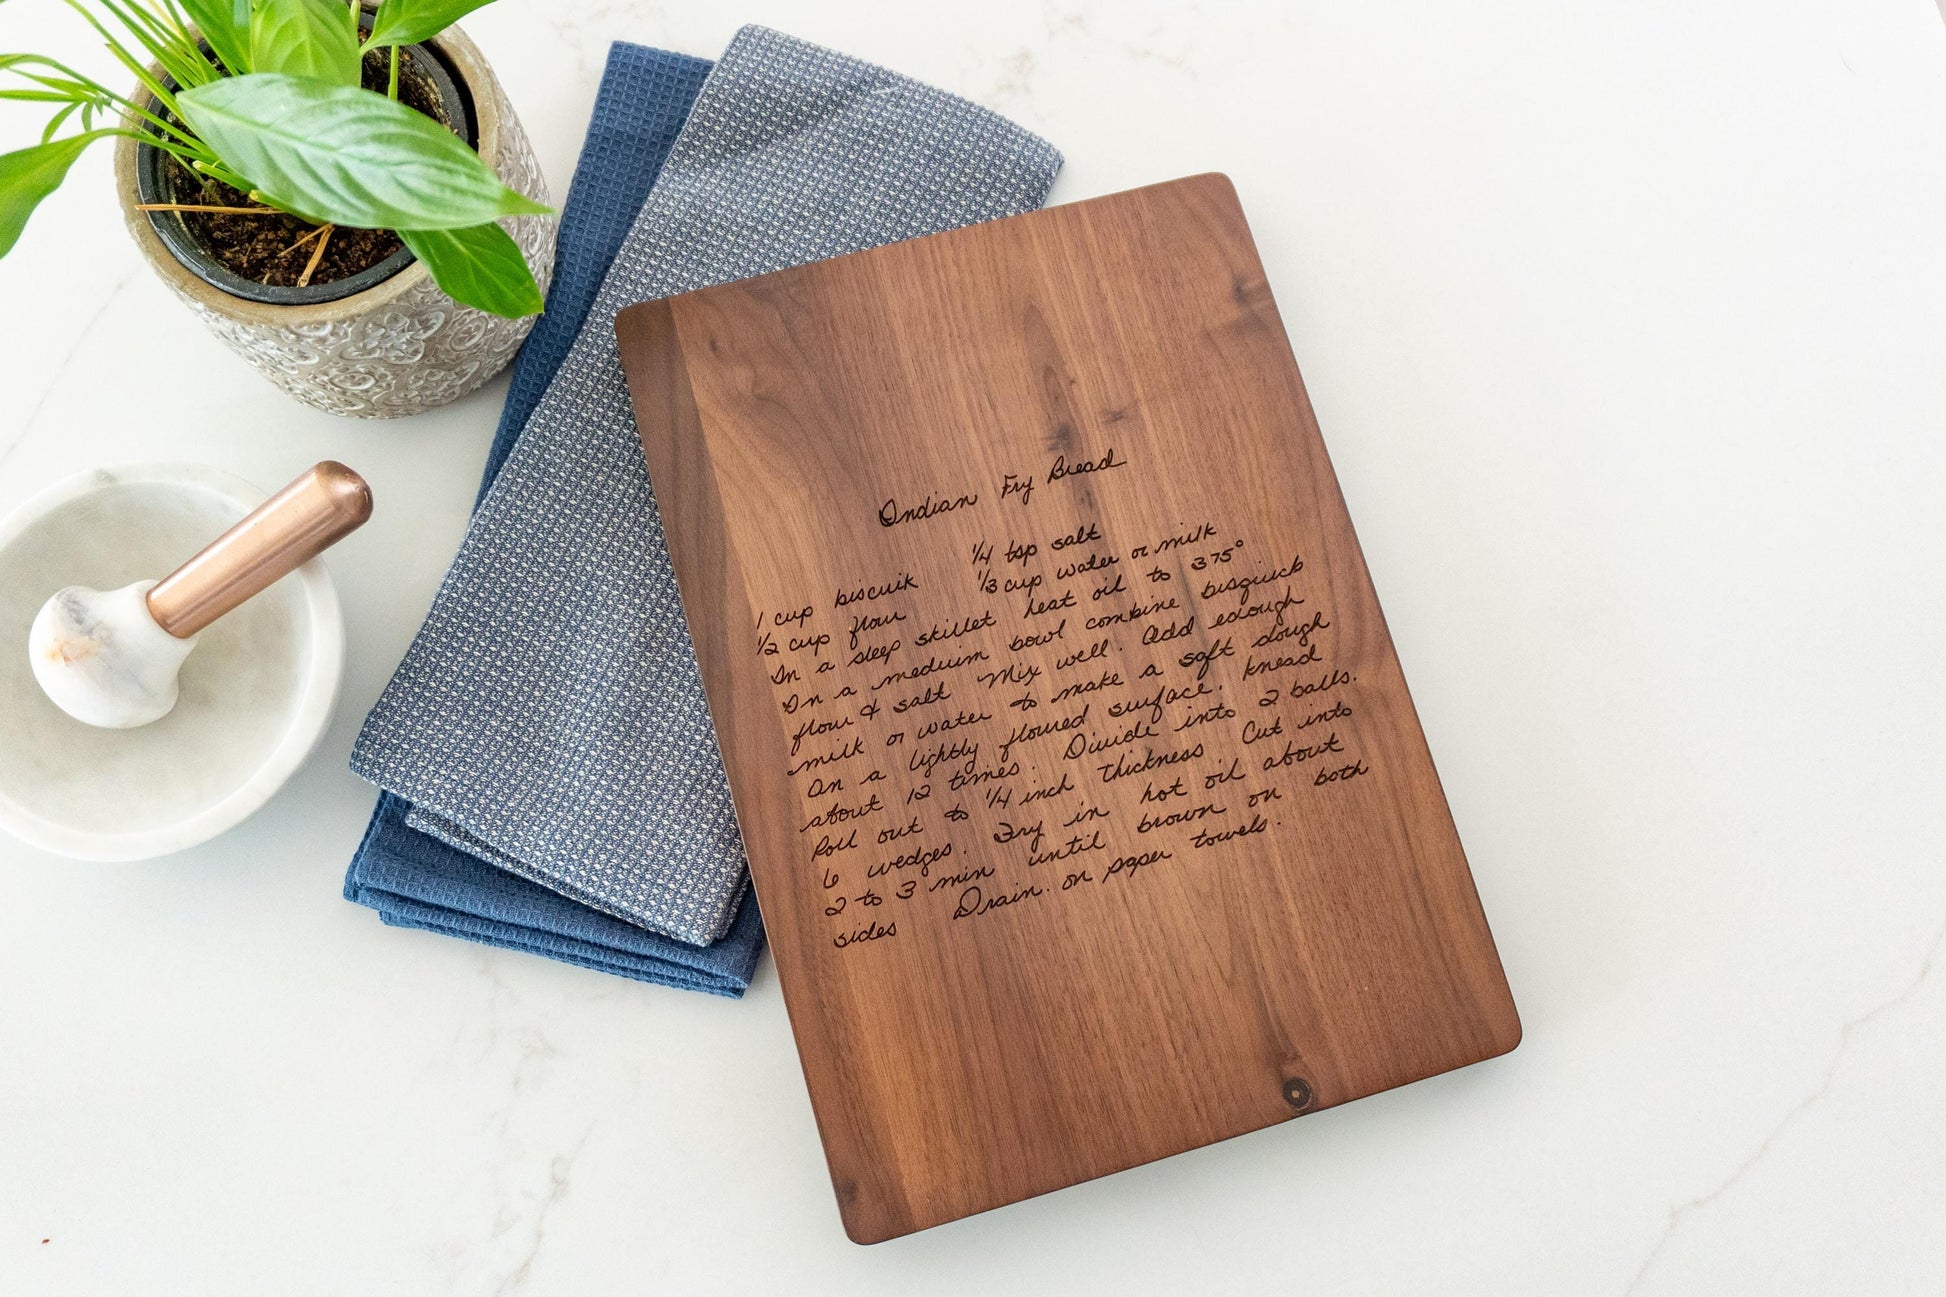 Indian Fry Bread
1/4 tsp salt
1 cup biscuik 1/3 cup water or milk
1/2 cup flour
In a sleep skillet heat oil to 375°
On a medium bowl combine bisquick
flour & salt Mix well. Add enough
milk or water to make a soft dough
On a lightly floured surface, knead
about 12 times. Divide into 2 balls.
Roll out to 1/4 inch thickness Cut into
6 wedges. Fry in hot oil about
2 to 3 min until brown on both
sides Drain. on paper towels.